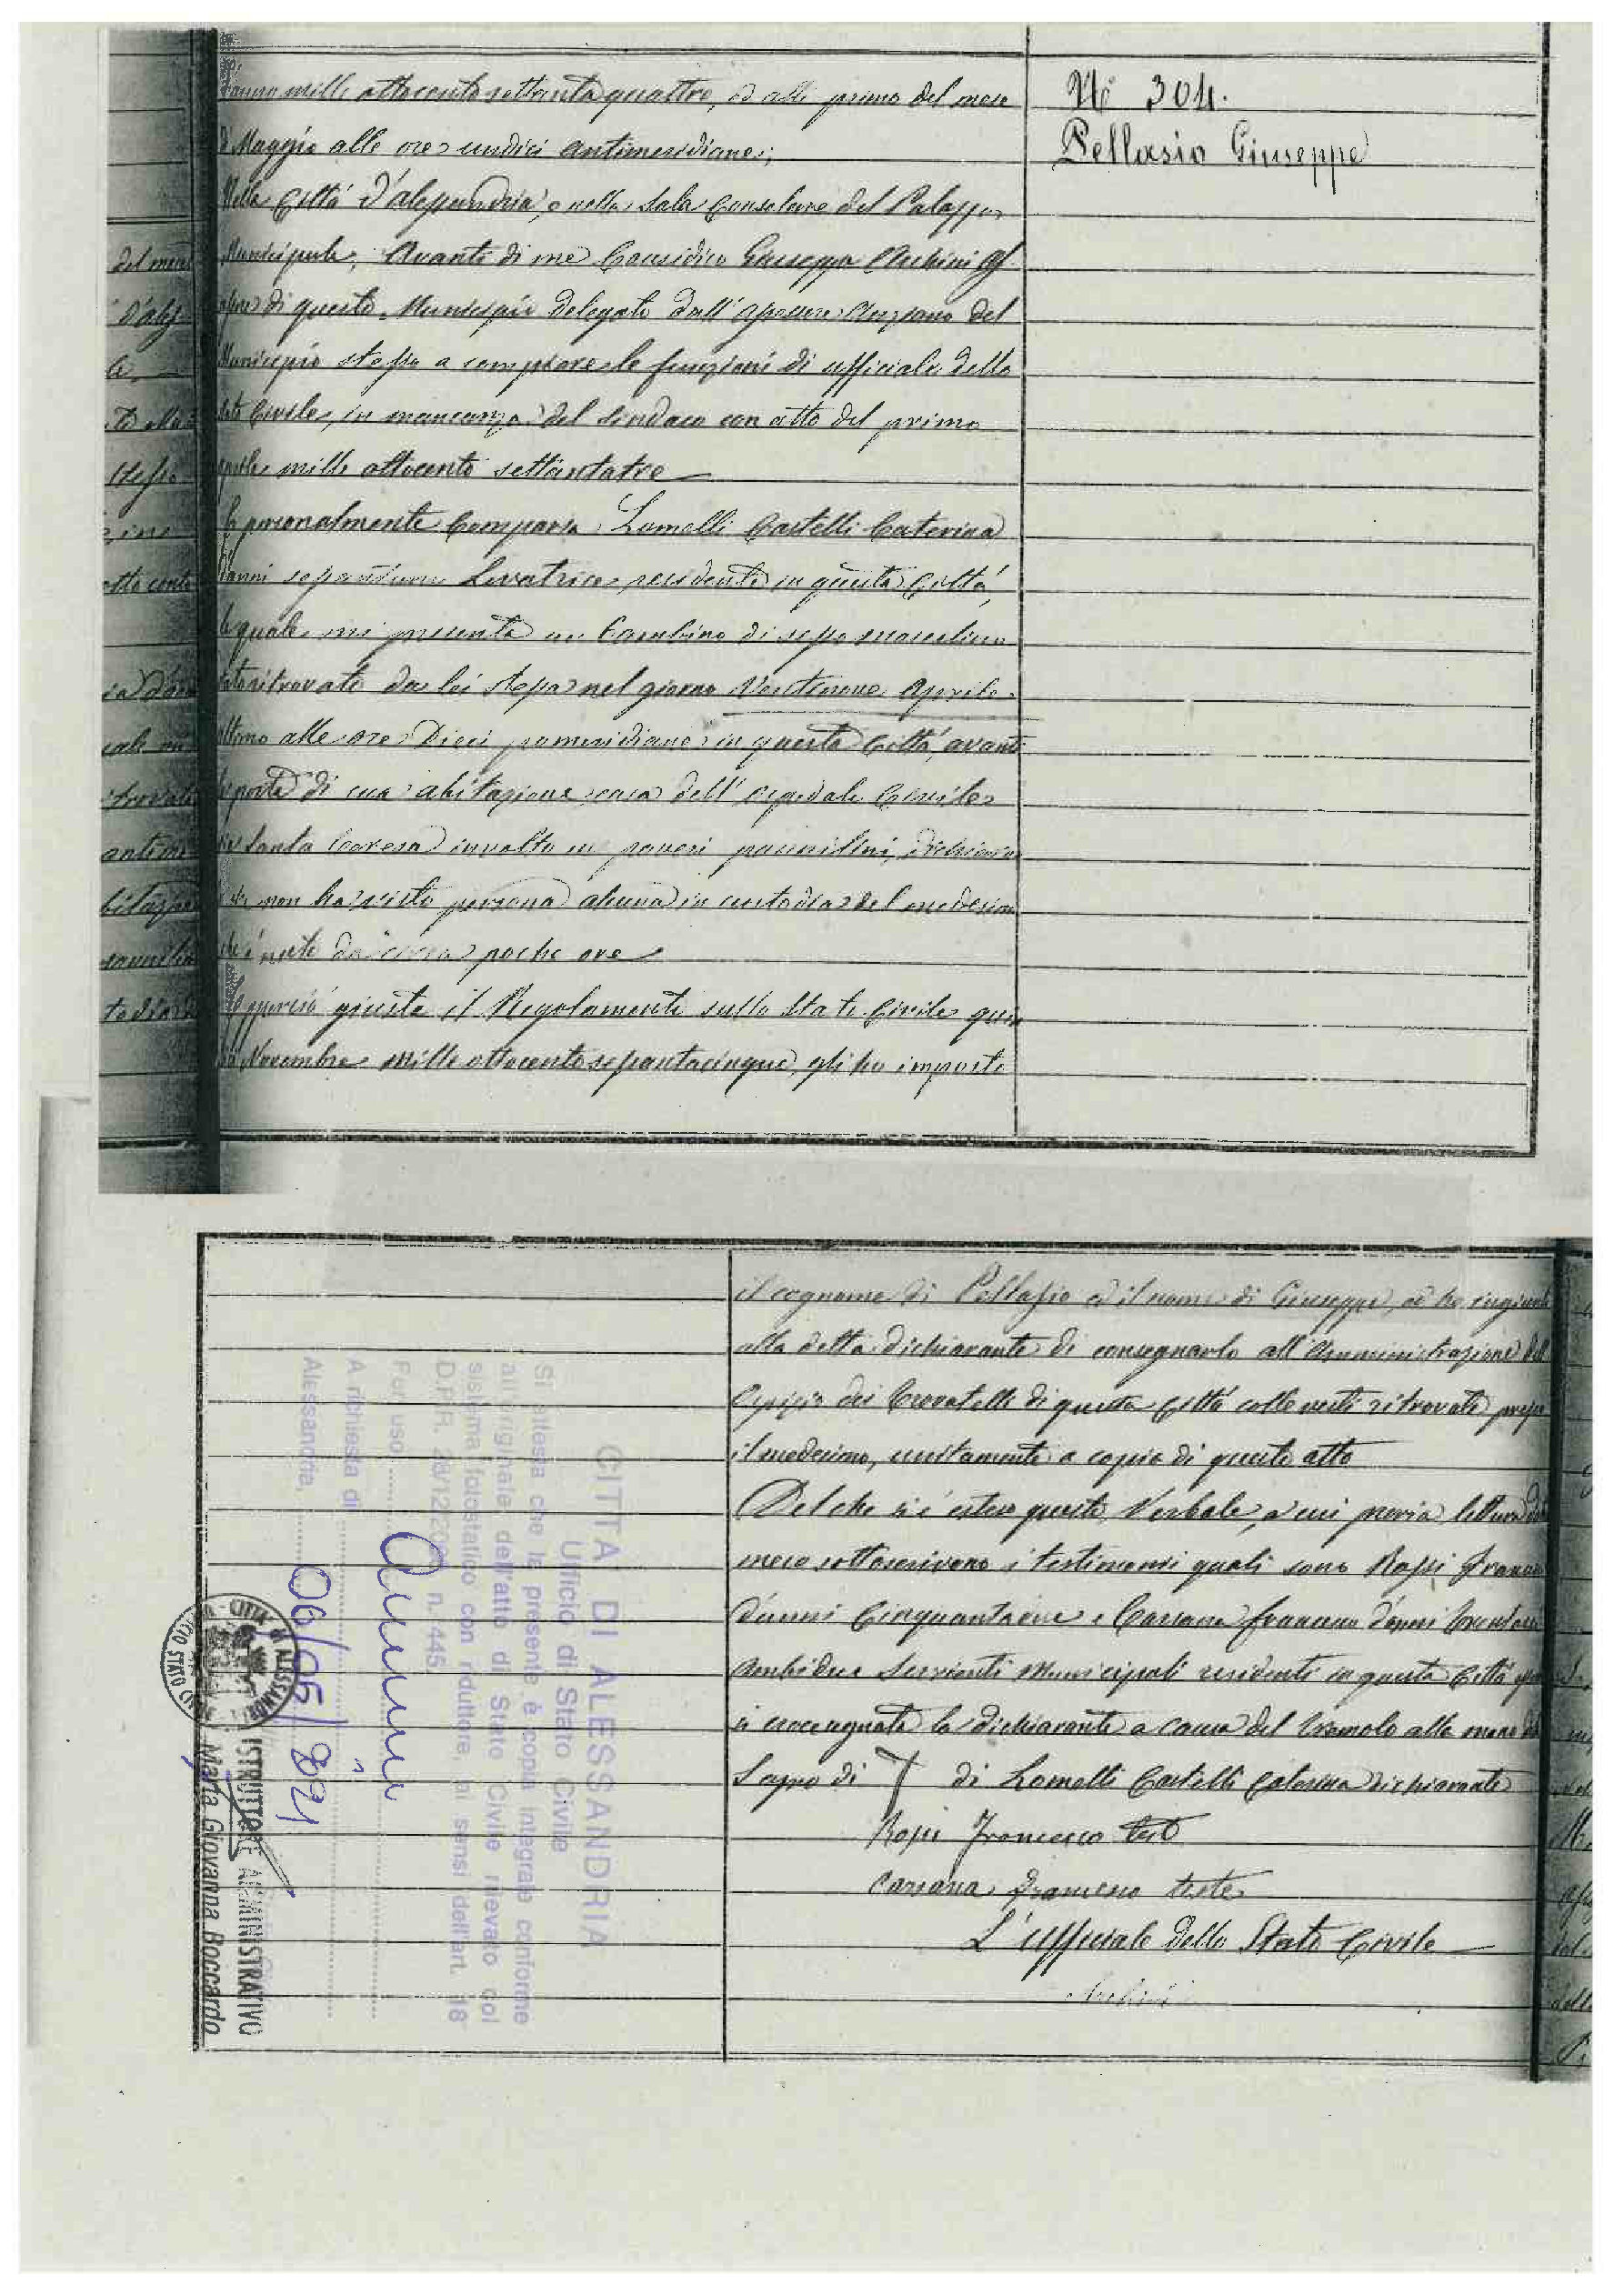 L'anno mille ottocento settanta quattro, ed alli primo del mese
di Maggio alle ore undici antimeridiane;
Nella Città d'Alessandria, e nella sala Consolare del Palazzo
Municipale; Avanti di me Causidico Giuseppe Archini
di questo Municipio delegato dall'Assessore Anziano del
Municipio stesso a compiere le funzioni di ufficiale dello
Stato Civile, in mancanza del Sindaco con atto del primo
mille ottocento settantatre
È personalmente Comparsa Lomelli Castelli Caterina
d'anni sessantuno Levatrice residente in questa Città,
la quale mi presenta un bambino di sesso mascolino
ritrovato da lei stessa nel giorno Ventinove Aprile
alle ore Dieci pomeridiane in questa Città, avanti
la porta di sua abitazione, casa dell'ospedale Civile
Santa Teresa involto in poveri pannilini, dichiara
che non ha visto persona alcuna in custodia del medesimo
che è nato da circa poche ore
Epperciò giusta il Regolamento sullo Stato Civile
Novembre mille ottocento sessantacinque, gli ho imposto
No 304.
Pellasio Giuseppe
del mese
D'Aless
le,
stesso
otto cento
ritrovato
antim
bitazione
pannilin
todia
il cognome di Pellasio ed il nome di Giuseppe, ed ho ingiunto
alla detta dichiarante di consegnarlo all'Amministrazione dell'
Ospizio dei Trovatelli di questa Città colle vesti ritrovate presso
il medesimo, unitamente a copia di questo atto
Del che si è esteso questo Verbale, a cui previa lettura
meco sottoscrivono i testimoni quali sono Rossi Francesco
d'anni Cinquantanove e Carrara Francesco d'anni
ambidue Servienti Municipali residenti in questa Città
si croccegnata la dichiarante a causa del tremolo alla mano
Segno di † di Lomelli Castelli Caterina dichiarante
Rossi Francesco teste
Carrara Francesco teste
L'Uffiziale dello Stato Civile
Archini
CITTA' DI ALESSANDRIA
Ufficio di Stato Civile
Si attesta che la presente è copia integrale conforme
all'originale dell'atto di Stato Civile rilevato col
sistema fotostatico con riduttore, ai sensi dell'art. 18
D.P.R. 28/12/2000 n. 445
Per uso
A richiesta di
Alessandria,
ISTRUTTORE AMMINISTRATIVO
Maria Giovanna Boccardo